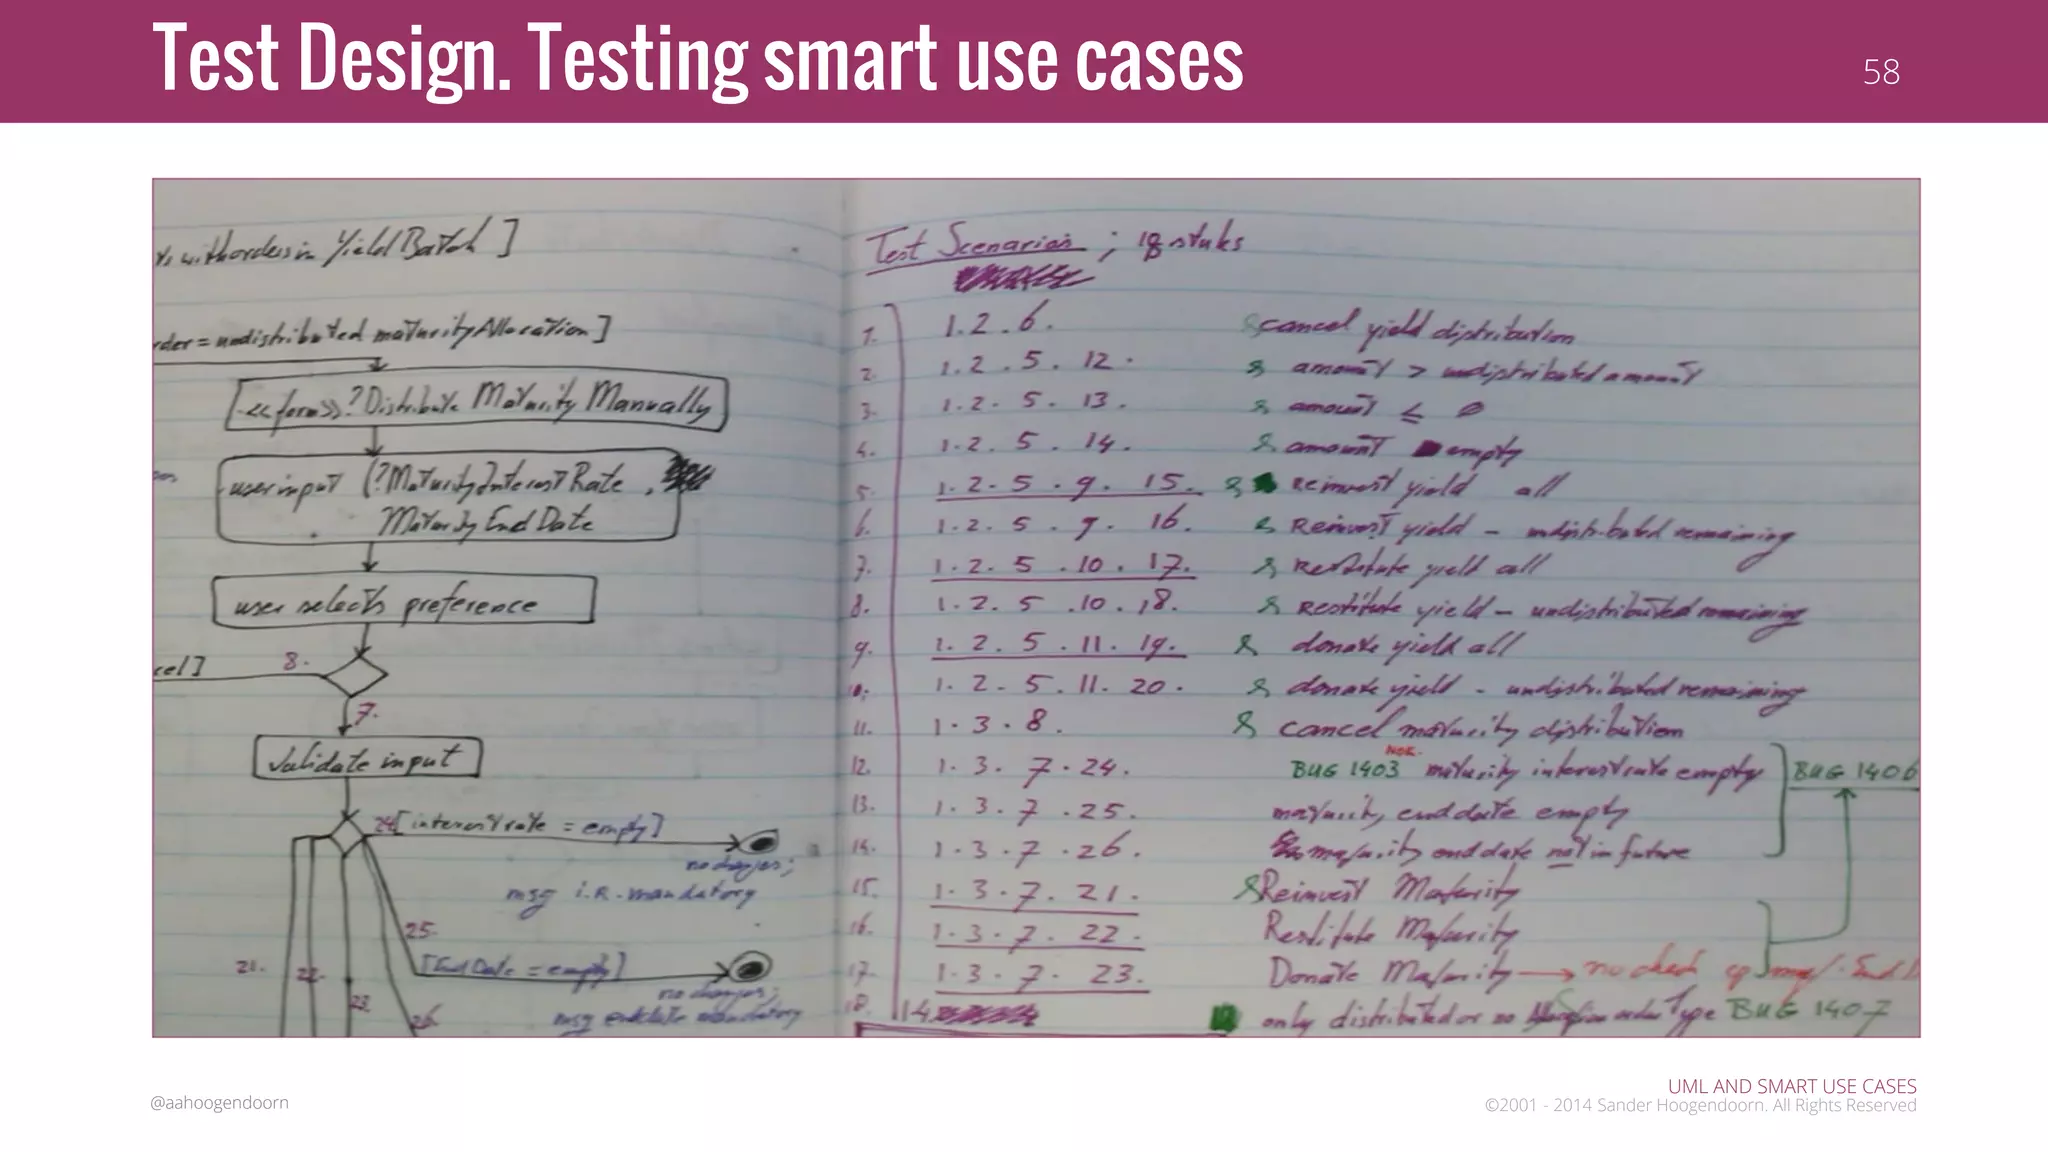 Test Design. Testing smart use cases
58
withordersin YieldBatch ]
rder = undistributed maturityAllocation ]
<<form>> ? Distribute Maturity Manually
user input (?MaturityInterestRate,
MaturityEndDate
user selects preference
cel ]
8.
7.
validate input
24 [ interestrate = empty ]
no changes;
msg i.R. mandatory
25.
[ EndDate = empty ]
no changes;
msg enddate mandatory
21.
22.
23
26.
Test Scenarios ; 18 stuks
1. 1.2.6. cancel yield distribution
2. 1.2.5.12. amount > undistributed amount
3. 1.2.5.13. amount ≤ 0
4. 1.2.5.14. amount empty
5. 1.2.5.9.15. Reinvest yield all
6. 1.2.5.9.16. Reinvest yield - undistributed remaining
7. 1.2.5.10.17. Restitute yield all
8. 1.2.5.10.18. Restitute yield - undistributed remaining
9. 1.2.5.11.19. donate yield all
10. 1.2.5.11.20. donate yield - undistributed remaining
11. 1.3.8. cancel maturity distribution
NOK.
12. 1.3.7.24. BUG 1403 maturity interestrate empty BUG 1406
13. 1.3.7.25. maturity enddate empty
14. 1.3.7.26. maturity enddate not in future
15. 1.3.7.21. Reinvest Maturity
16. 1.3.7.22. Restitute Maturity
17. 1.3.7.23. Donate Maturity → no check op
18. 14 only distributed or no order Type BUG 1407
@aahoogendoorn
UML AND SMART USE CASES
©2001 - 2014 Sander Hoogendoorn. All Rights Reserved